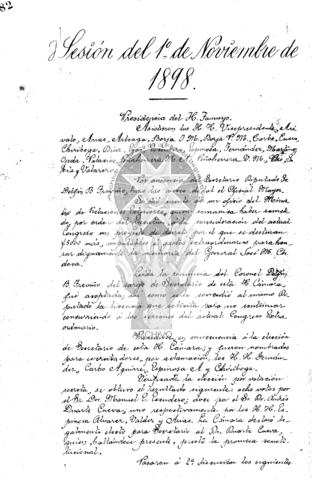 82
Sesión del 1º de Noviembre de
1898.
Presidencia del H. Tamayo.
Asistieron los H. H. Vicepresidente, Aré-
valo, Arias, Arteaga, Borja J. M., Borja V. M., Carbo, Cueva,
Chiriboga, Díaz, Espinosa, Fernández,
Ojeda, Palacio,
ria y Valarezo.
Por ausencia del Secretario Diputado Sr.
Delfín B. Treviño, hizo las veces de tal el Oficial Mayor.
un oficio del Minis-
de Relaciones Exteriores, en que comunica haber someti-
do, por orden la consideración del actual
Congreso un proyecto de decreto por el que se destinan
$ 5.000 más, imputables a gastos extraordinarios para hon-
rar dignamente la memoria del General José M. Cór-
dova.
Leída la renuncia del Coronel Delfín
B. Treviño del cargo de Secretario de esta H. Cámara,
fué aceptada, así como se concedió al mismo Di-
putado la licencia que solicita para no continuar
concurriendo a las sesiones del actual Congreso Extra-
ordinario.
Procedióse, en consecuencia a la elección
de Secretario de esta H. Cámara; y fueron nombrados
para escrutadores, por aclamación, los H. H. Fernán-
dez, Carbo Aguirre, Espinosa A. y Chiriboga.
Verificada la elección por votación
secreta, se obtuvo el siguiente: ocho votos por
el Sr. Dor. Manuel E. Escudero; doce por el Sr. Dor.
Duarte Cueva; uno respectivamente por los H. H. Es-
pinosa Alvarez, Valdez y Arias. La Cámara declaró le-
galmente electo para Secretario al Dr. Duarte Cueva,
quien, hallándose presente, prestó la promesa consti-
tucional.
Pasaron a 2ª discusión los siguientes
ARCHIVO